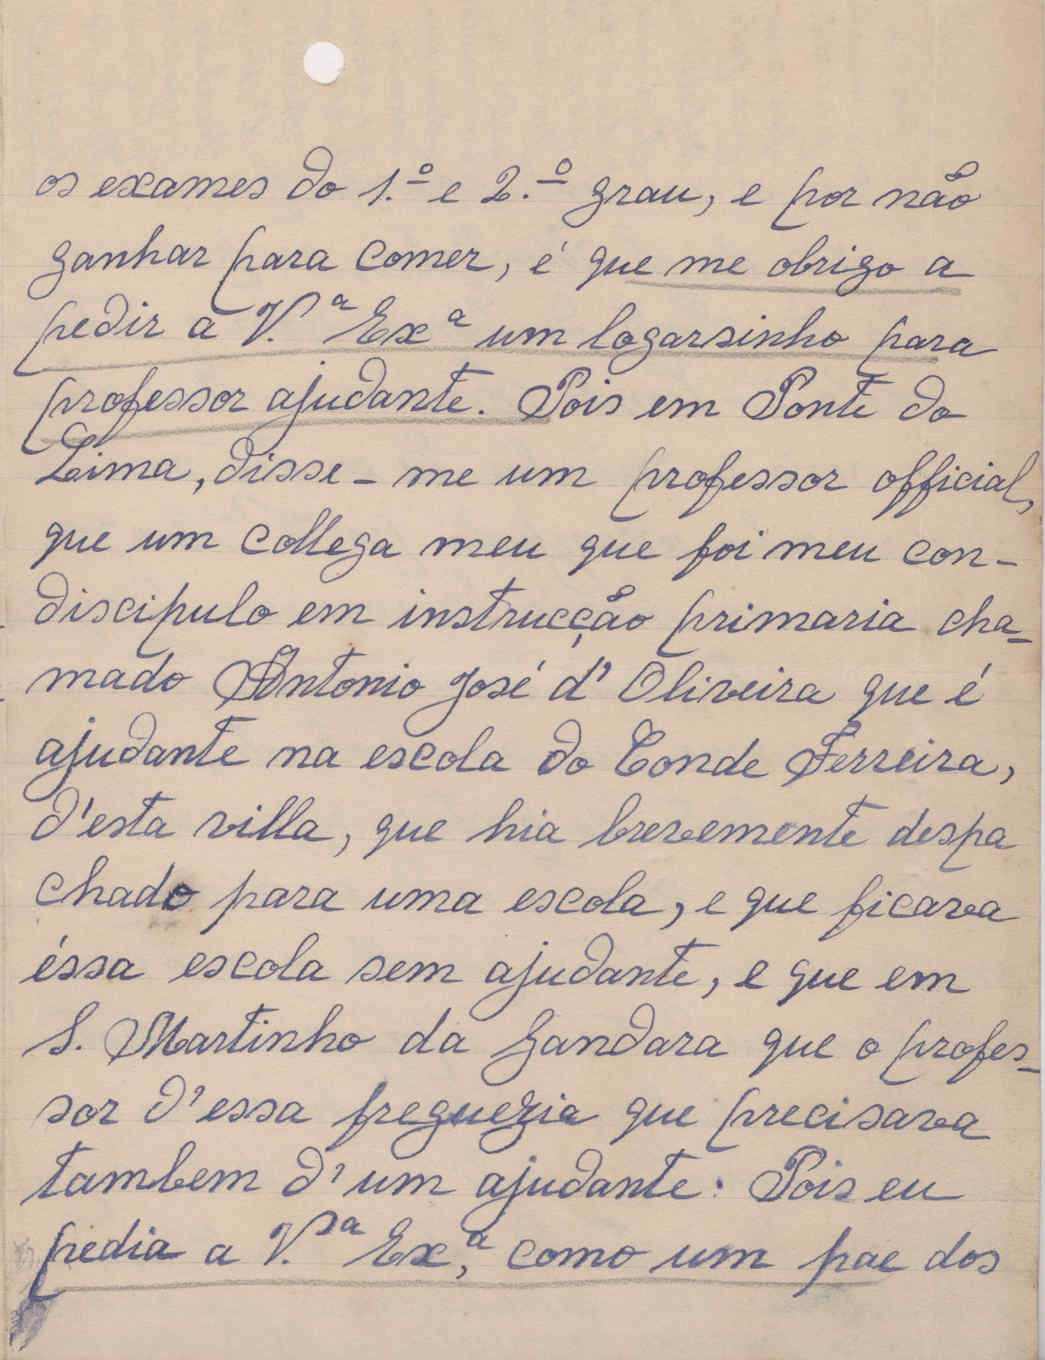 os exames do 1.º e 2.º grau, e por não
ganhar para comer, é que me obrigo a
pedir a V.ª Exª um logarsinho para
professor ajudante. Pois em Ponte do
Lima, disse-me um professor official,
que um collega meu que foi meu con-
discipulo em instrucção primaria cha-
mado Antonio José d'Oliveira que é
ajudante na escola do Conde Ferreira,
d'esta villa, que hia brevemente despa
chado para uma escola, e que ficava
éssa escola sem ajudante, e que em
S. Martinho da Gandara que o profes-
sor d'essa freguezia que precisava
tambem d'um ajudante: Pois eu
pedia a V.sa Exª, como um pae dos